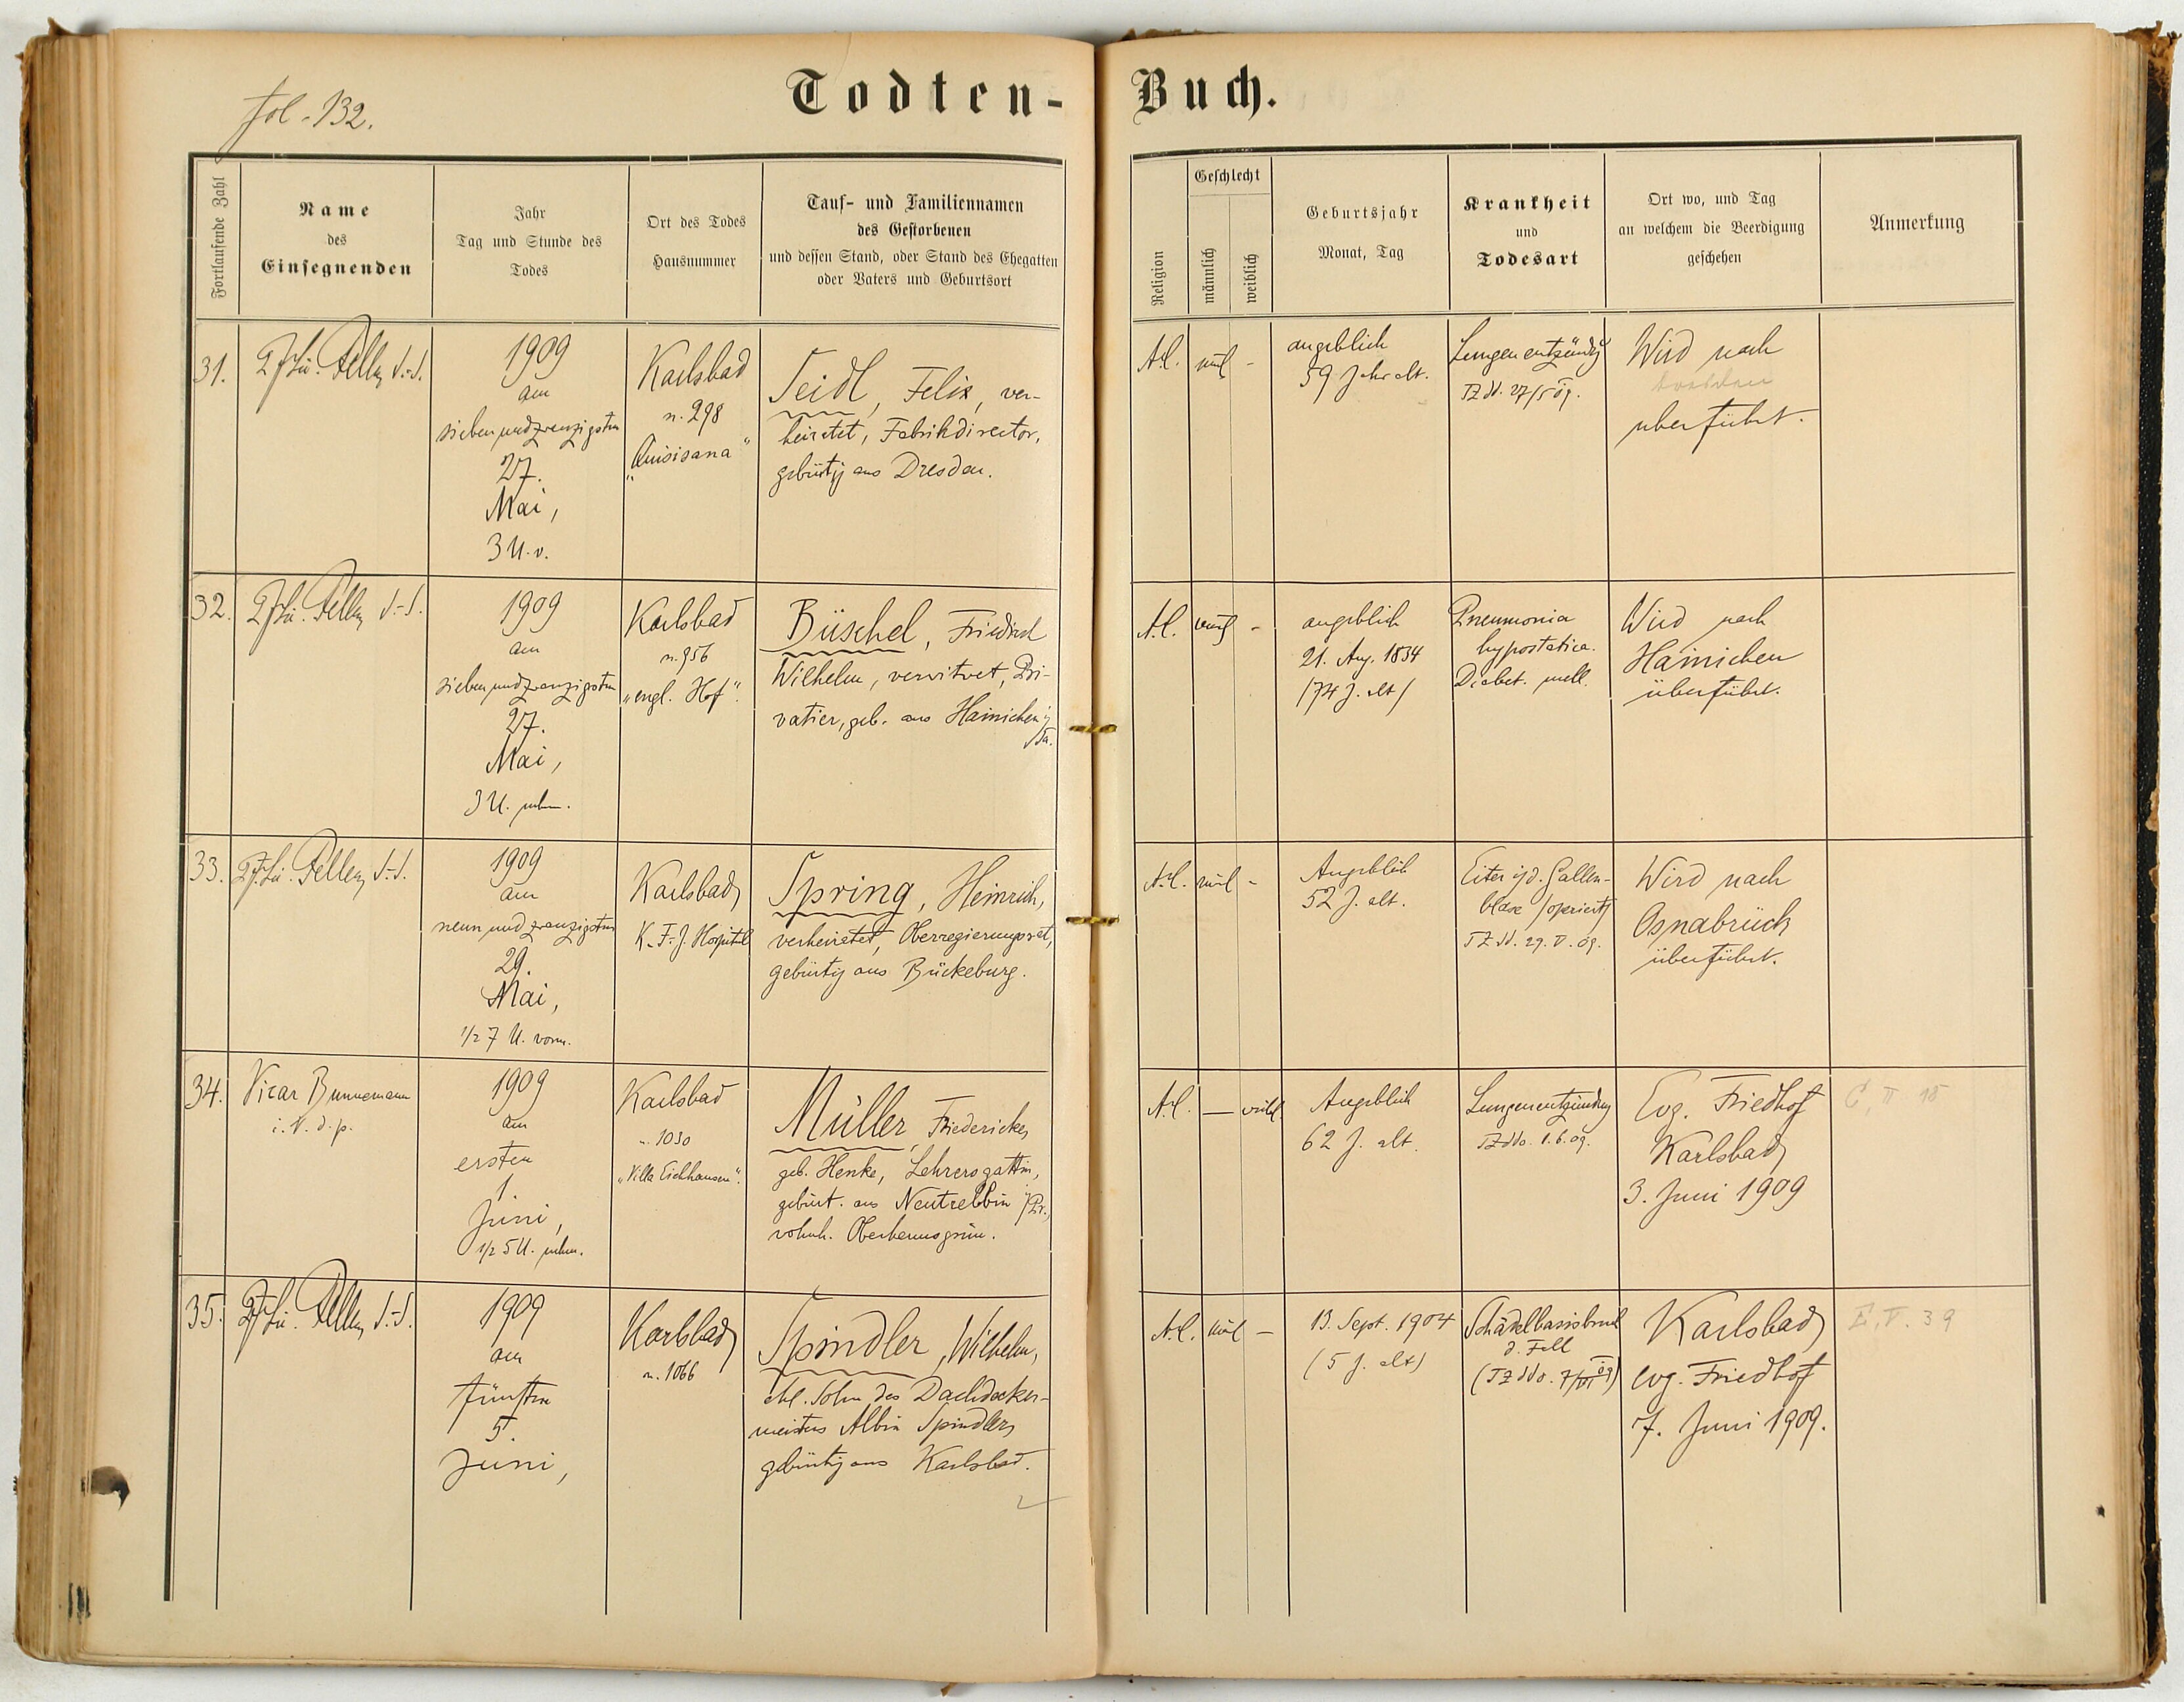 fol. 132.
Todten-Buch.
Fortlaufende Zahl
Name
des
Einsegnenden
Jahr
Tag und Stunde des
Todes
Ort des Todes
Hausnummer
Tauf- und Familiennamen
des Gestorbenen
und dessen Stand, oder Stand des Ehegatten
oder Vaters und Geburtsort
Religion
Geschlecht
männlich
weiblich
Geburtsjahr
Monat, Tag
Krankheit
und
Todesart
Ort wo, und Tag
an welchem die Beerdigung
geschehen
Anmerkung
31.
1909
am
siebenundzwanzigsten
27.
Mai,
3 U. v.
Karlsbad
n. 298
"Quisisana"
Seidl, Felix, ver-
heiratet, Fabrikdirector,
gebürtig aus Dresden.
A.C.
ml
-
angeblich
59 Jahr alt.
Lungenentzündg
TZ dd. 27/5 09.
Wird nach
Dresden
überführt.
32.
1909
am
siebenundzwanzigsten
27.
Mai,
3 U. nchm.
Karlsbad
n. 956
"engl. Hof".
Büschel, Friedrich
Wilhelm, verwitwet, Pri-
vatier, geb. aus Hainichen i/
Sa.
A.C.
-
angeblich
21. Aug. 1834
/74 J. alt/
Pneumonia
hypostatica.
Diabet. mell.
Wird nach
Hainichen
überführt.
33.
1909
am
neunundzwanzigsten
29.
Mai,
1/2 7 U. vorm.
Karlsbad,
K. F. J. Hospital
Spring, Heinrich,
verheiratet, Oberregierungsrat,
gebürtig aus Bückeburg.
A.C.
ml
-
Angeblich
52 J. alt.
Eiter i/d. Gallen-
blase /operiert/
TZ dd. 29. V. 09.
Wird nach
Osnabrück
überführt.
34.
Vicar Bunnemann
i. V. d. p.
1909
am
ersten
1.
Juni,
1/2 5 U. nchm.
Karlsbad
n. 1030
"Villa Eichhausen".
Müller, Friedericke,
geb. Henke, Lehrersgattin,
gebürt. aus Neutrebbin /Pr.,
wohnh. Oberbrumsgrün.
A.C.
—
weibl
Angeblich
62 J. alt.
Lungenentzündung
TZ ddo. 1.6.09.
Evg. Friedhof
Karlsbad,
3. Juni 1909
C, II 18
35.
1909
am
fünften
5.
Juni,
Karlsbad,
n. 1066
Spindler, Wilhelm,
ehl. Sohn des Dachdecker-
meisters Albin Spindler,
gebürtig aus Karlsbad.
A.C.
ml
—
13. Sept. 1904
(5 J. alt)
Schädelbasisbruch
d. Fall
(TZ ddo. 7/VI 09)
Karlsbad,
evg. Friedhof
7. Juni 1909.
E, V. 39